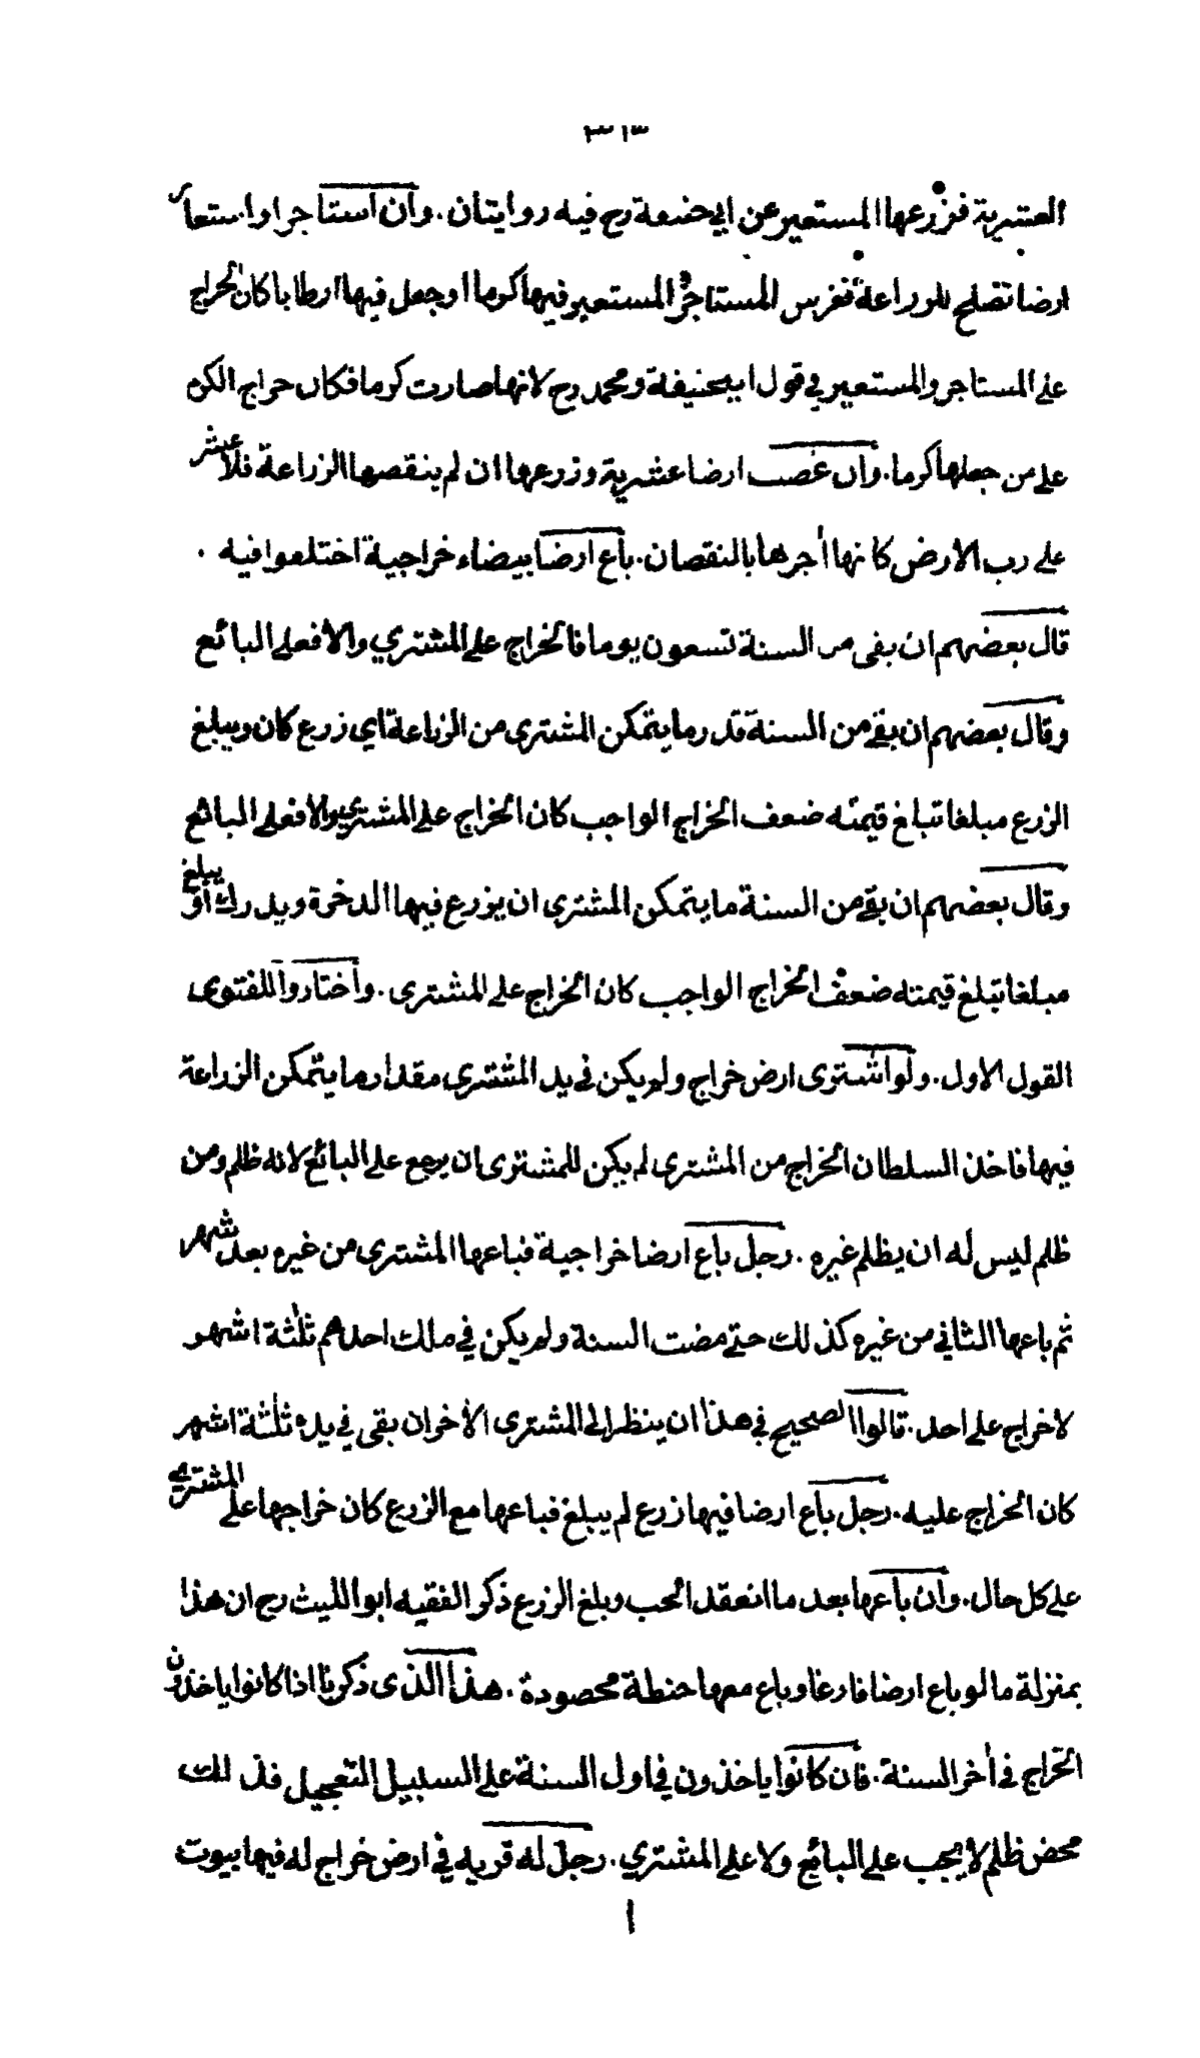 ٣١٣
العشرية فزرعها المستعير عن ابي حنيفة رح فيه روايتان. وان استاجر اواستعار
ارضا تصلح للزراعة فغرس المستاجر او المستعير فيها كرما او جعل فيها ارطابا كان الخراج
على المستاجر والمستعير في قول ابيحنيفة ومحمد رح لانها صارت كرما فكان خراج الكرم
على من جعلها كرما. وان غصب ارضا عشرية وزرعها ان لم ينقصها الزراعة فلا عشر
على رب الارض كانها أجرها بالنقصان. باع ارضا بيضاء خراجية اختلفوا فيه .
قال بعضهم ان بقى من السنة تسعون يوما فالخراج على المشتري والا فعلى البائع
وقال بعضهم ان بقي من السنة قدر ما يتمكن المشترى من الزراعة اي زرع كان ويبلغ
الزرع مبلغا تبلغ قيمته ضعف الخراج الواجب كان الخراج على المشتري والا فعلى البائع
وقال بعضهم ان بقي من السنة ما يتمكن المشترى ان يزرع فيها الدخرة ويدرك او يبلغ
مبلغا تبلغ قيمته ضعف الخراج الواجب كان الخراج على المشترى. واختاروا للفتوى
القول الاول. ولو اشترى ارض خراج ولم يكن في يد المشترى مقدار ما يتمكن الزراعة
فيها فاخذ السلطان الخراج من المشترى لم يكن للمشترى ان يرجع على البائع لانه ظلم ومن
ظلم ليس له ان يظلم غيره . رجل باع ارضا خراجية فباعها المشترى من غيره بعد شهر
ثم باعها الثاني من غيره كذلك حتى مضت السنة ولم يكن في ملك احدهم ثلثة اشهر
لا خراج على احد. قالوا الصحيح في هذا ان ينظر الى المشترى الأخر ان بقى في يده ثلثة اشهر
كان الخراج عليه. رجل باع ارضا فيها زرع لم يبلغ فباعها مع الزرع كان خراجها على المشتري
على كل حال. وان باعها بعد ما انعقد الحب وبلغ الزرع ذكر الفقيه ابو الليث رح ان هذا
بمنزلة ما لو باع ارضا فارغا وباع معها حنطة محصودة . هذا الذى ذكرنا اذا كانوا ياخذون
الخراج في أخر السنة. فان كانوا ياخذون في اول السنة على السبيل التعجيل فذلك
محض ظلم لا يجب على البائع ولا على المشتري. رجل له قريه في ارض خراج له فيها بيوت
ا